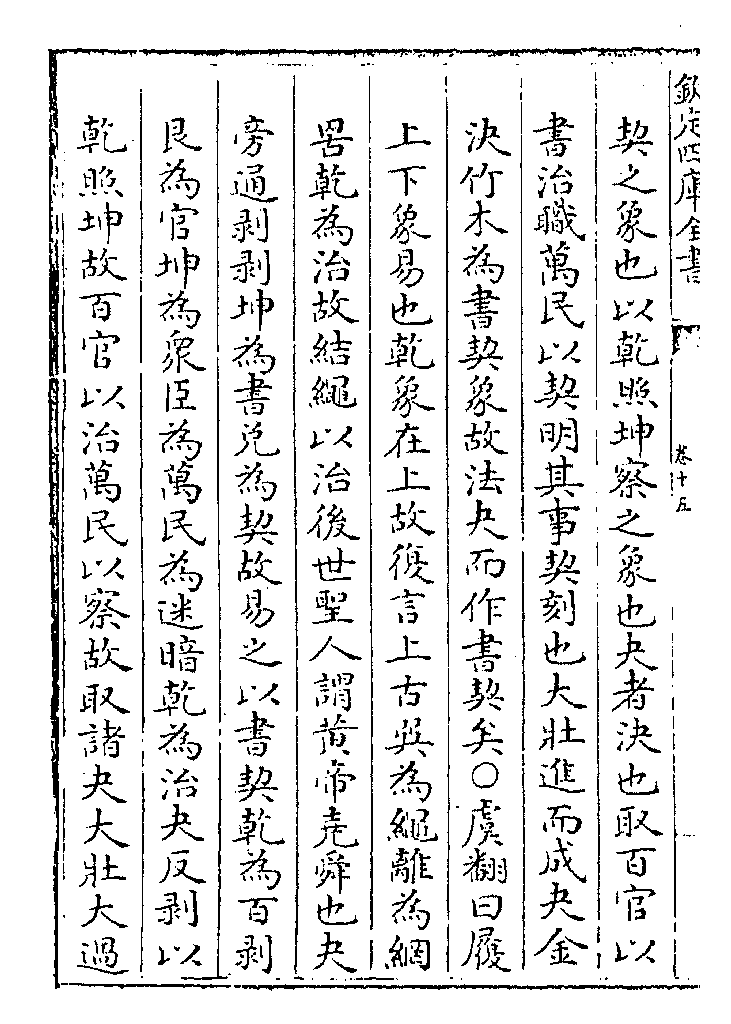 欽定四庫全書
卷十五
契之象也以乾照坤察之象也夬者決也取百官以
書治職萬民以契明其事契刻也大壯進而成夬金
決竹木為書契象故法夬而作書契矣○虞翻曰履
上下象易也乾象在上故復言上古巽為繩離為網
罟乾為治故結繩以治後世聖人謂黃帝堯舜也夬
旁通剥剥坤為書兌為契故易之以書契乾為百剥
艮為官坤為衆臣為萬民為迷暗乾為治夬反剥以
乾照坤故百官以治萬民以察故取諸夬大壯大過